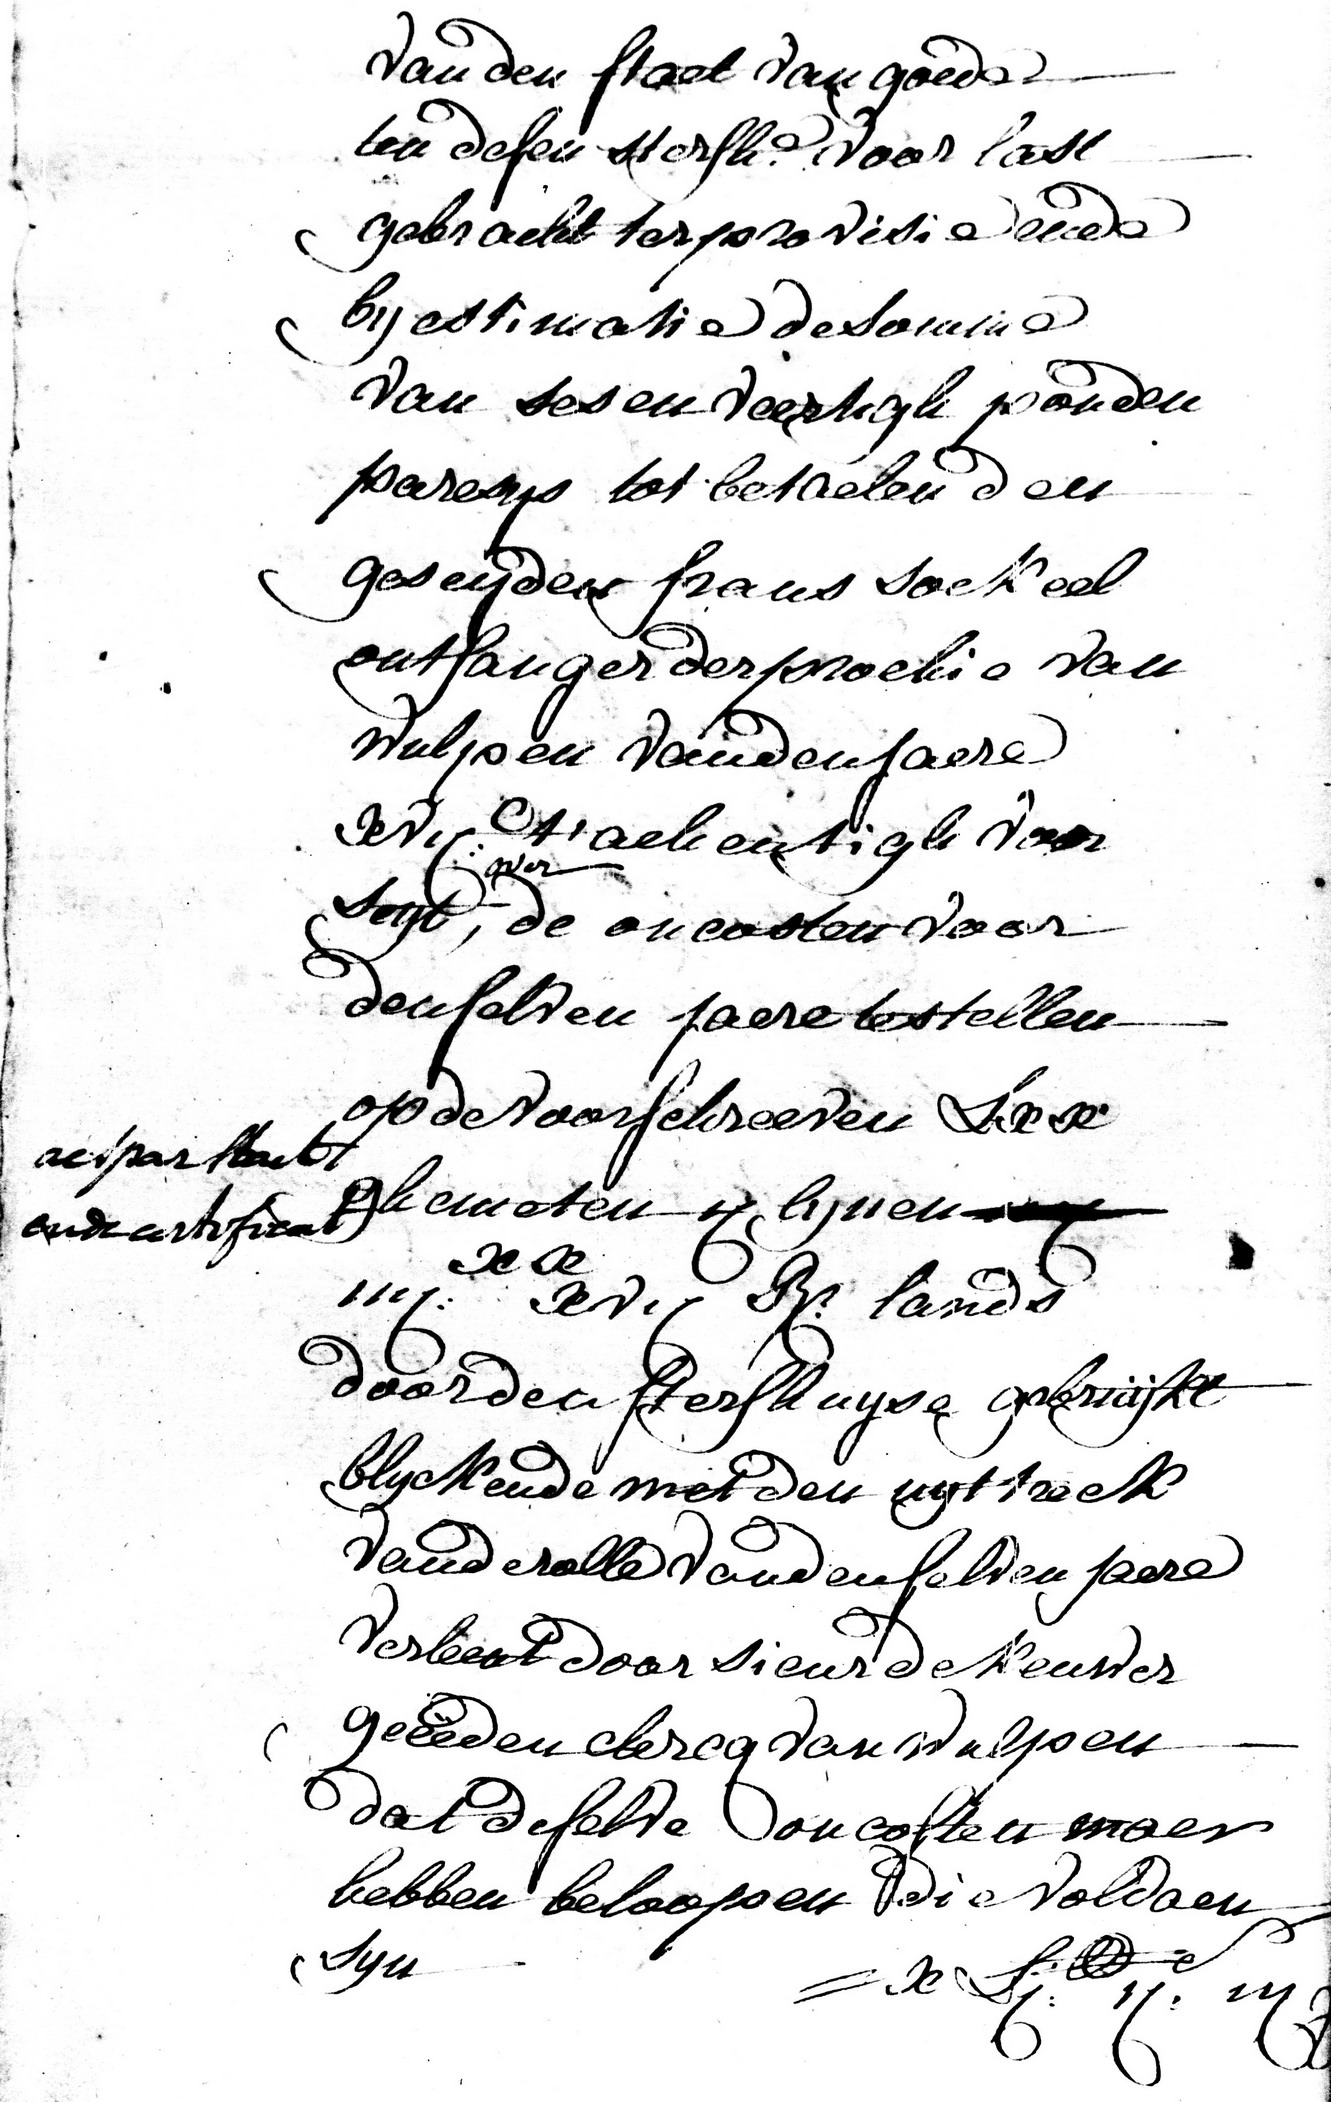 vanden staet van goede
ten desen sterfh.e voor last
gebracht ter provisie ende
by estimatie de somme
van sesenveertigh ponden
paresys tot betaelen den
geseyden frans sockeel
ontfanger der prochie van
wulpen vanden jaere
xvij:C t'achentigh voor
over
seyt, de oncosten voor
denselven jaere te stellen
op de voorschreeven Lxx
act par
ende certificat
ghemeten ij lynen
iiij:xx xvij R. lands
door den sterfhuyse gebruijkt
blyckende met den uyttreck
vande rolle vanden selven jaere
verleent door sieur de Keuwer
geëeden clercq van wulpen
dat deselve oncosten maer
hebben beloopen die voldaen
syn